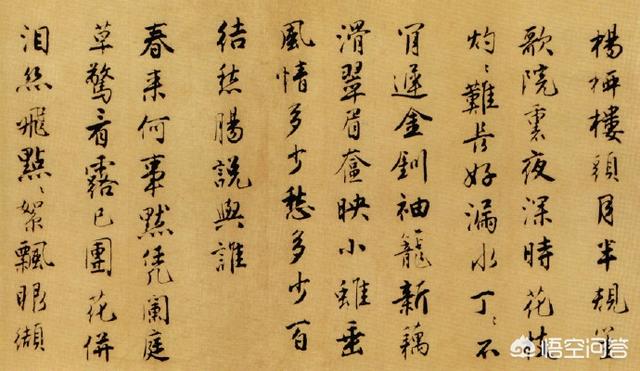 楊柳樓頭月半規笙
歌院裏夜深時花枝
灼〻難長好漏水丁〻不
肯遲金釧袖籠新藕
滑翠眉奩映小垂
風情多少愁多少百
結愁腸說與誰
春來何事默凭闌庭
草驚看露已團花併
淚絲飛點〻絮飄眼纈
悟空问答